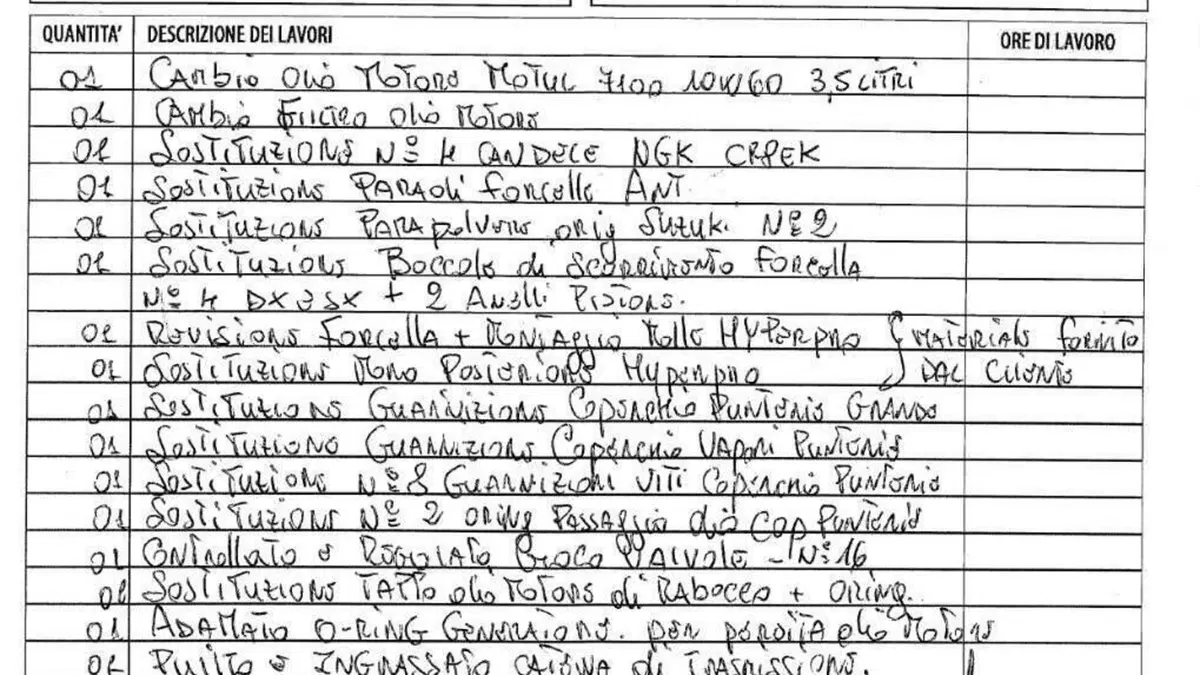 QUANTITA' DESCRIZIONE DEI LAVORI ORE DI LAVORO
01 CAMBIO OLIO MOTORE MOTUL 7100 10W/60 3,5 LITRI
01 CAMBIO FILTRO OLIO MOTORE
01 SOSTITUZIONE Nº 4 CANDELE NGK CR9EK
01 SOSTITUZIONE PARAOLI FORCELLE ANT.
01 SOSTITUZIONE PARAPOLVERE ORIG SUZUKI Nº 2
01 SOSTITUZIONE BOCCOLE DI SCORRIMENTO FORCELLA
Nº 4 DX E SX + 2 ANELLI PISTONE.
01 REVISIONE FORCELLA + MONTAGGIO MOLLE HYPERPRO } MATERIALE FORNITO
01 SOSTITUZIONE MONO POSTERIORE HYPERPRO DAL CLIENTE
01 SOSTITUZIONE GUARNIZIONE COPERCHIO PUNTERIE GRANDE
01 SOSTITUZIONE GUARNIZIONE COPERCHIO VAPORI PUNTERIE
01 SOSTITUZIONE Nº 8 GUARNIZIONI VITI COPERCHIO PUNTERIE
01 SOSTITUZIONE Nº 2 ORING PASSAGGIO OLIO COP PUNTERIE
01 CONTROLLATO E REGOLATO GIOCO VALVOLE - Nº 16
01 SOSTITUZIONE TAPPO OLIO MOTORE DI RABOCCO + ORING.
01 O-RING GENERATORE. PER PERDITA OLIO MOTORE
01 PULITO E INGRASSATO CATENA DI TRASMISSIONE.